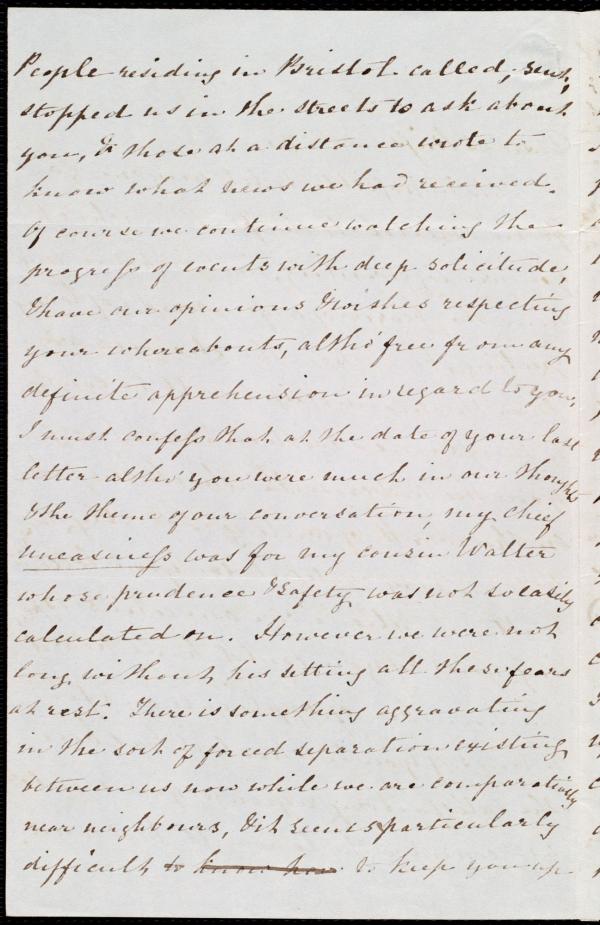 People residing in Bristol called, sent,
stopped us in the streets to ask about
you, & those at a distance wrote to
know what news we had received.
Of course we continue watching the
progress of events with deep solicitude,
& have our opinions & wishes respecting
your whereabouts, altho' free from any
definite apprehension in regard to you.
I must confess that at the date of your last
letter altho' you were much in our thoughts
& the theme of our conversation, my chief
uneasiness was for my cousin Walter
whose prudence & safety was not so easily
calculated on. However we were not
long without his setting all these fears
at rest. There is something aggravating
in the sort of forced separation existing
between us now while we are comparatively
near neighbours, & it seems particularly
difficult to know how to keep you up